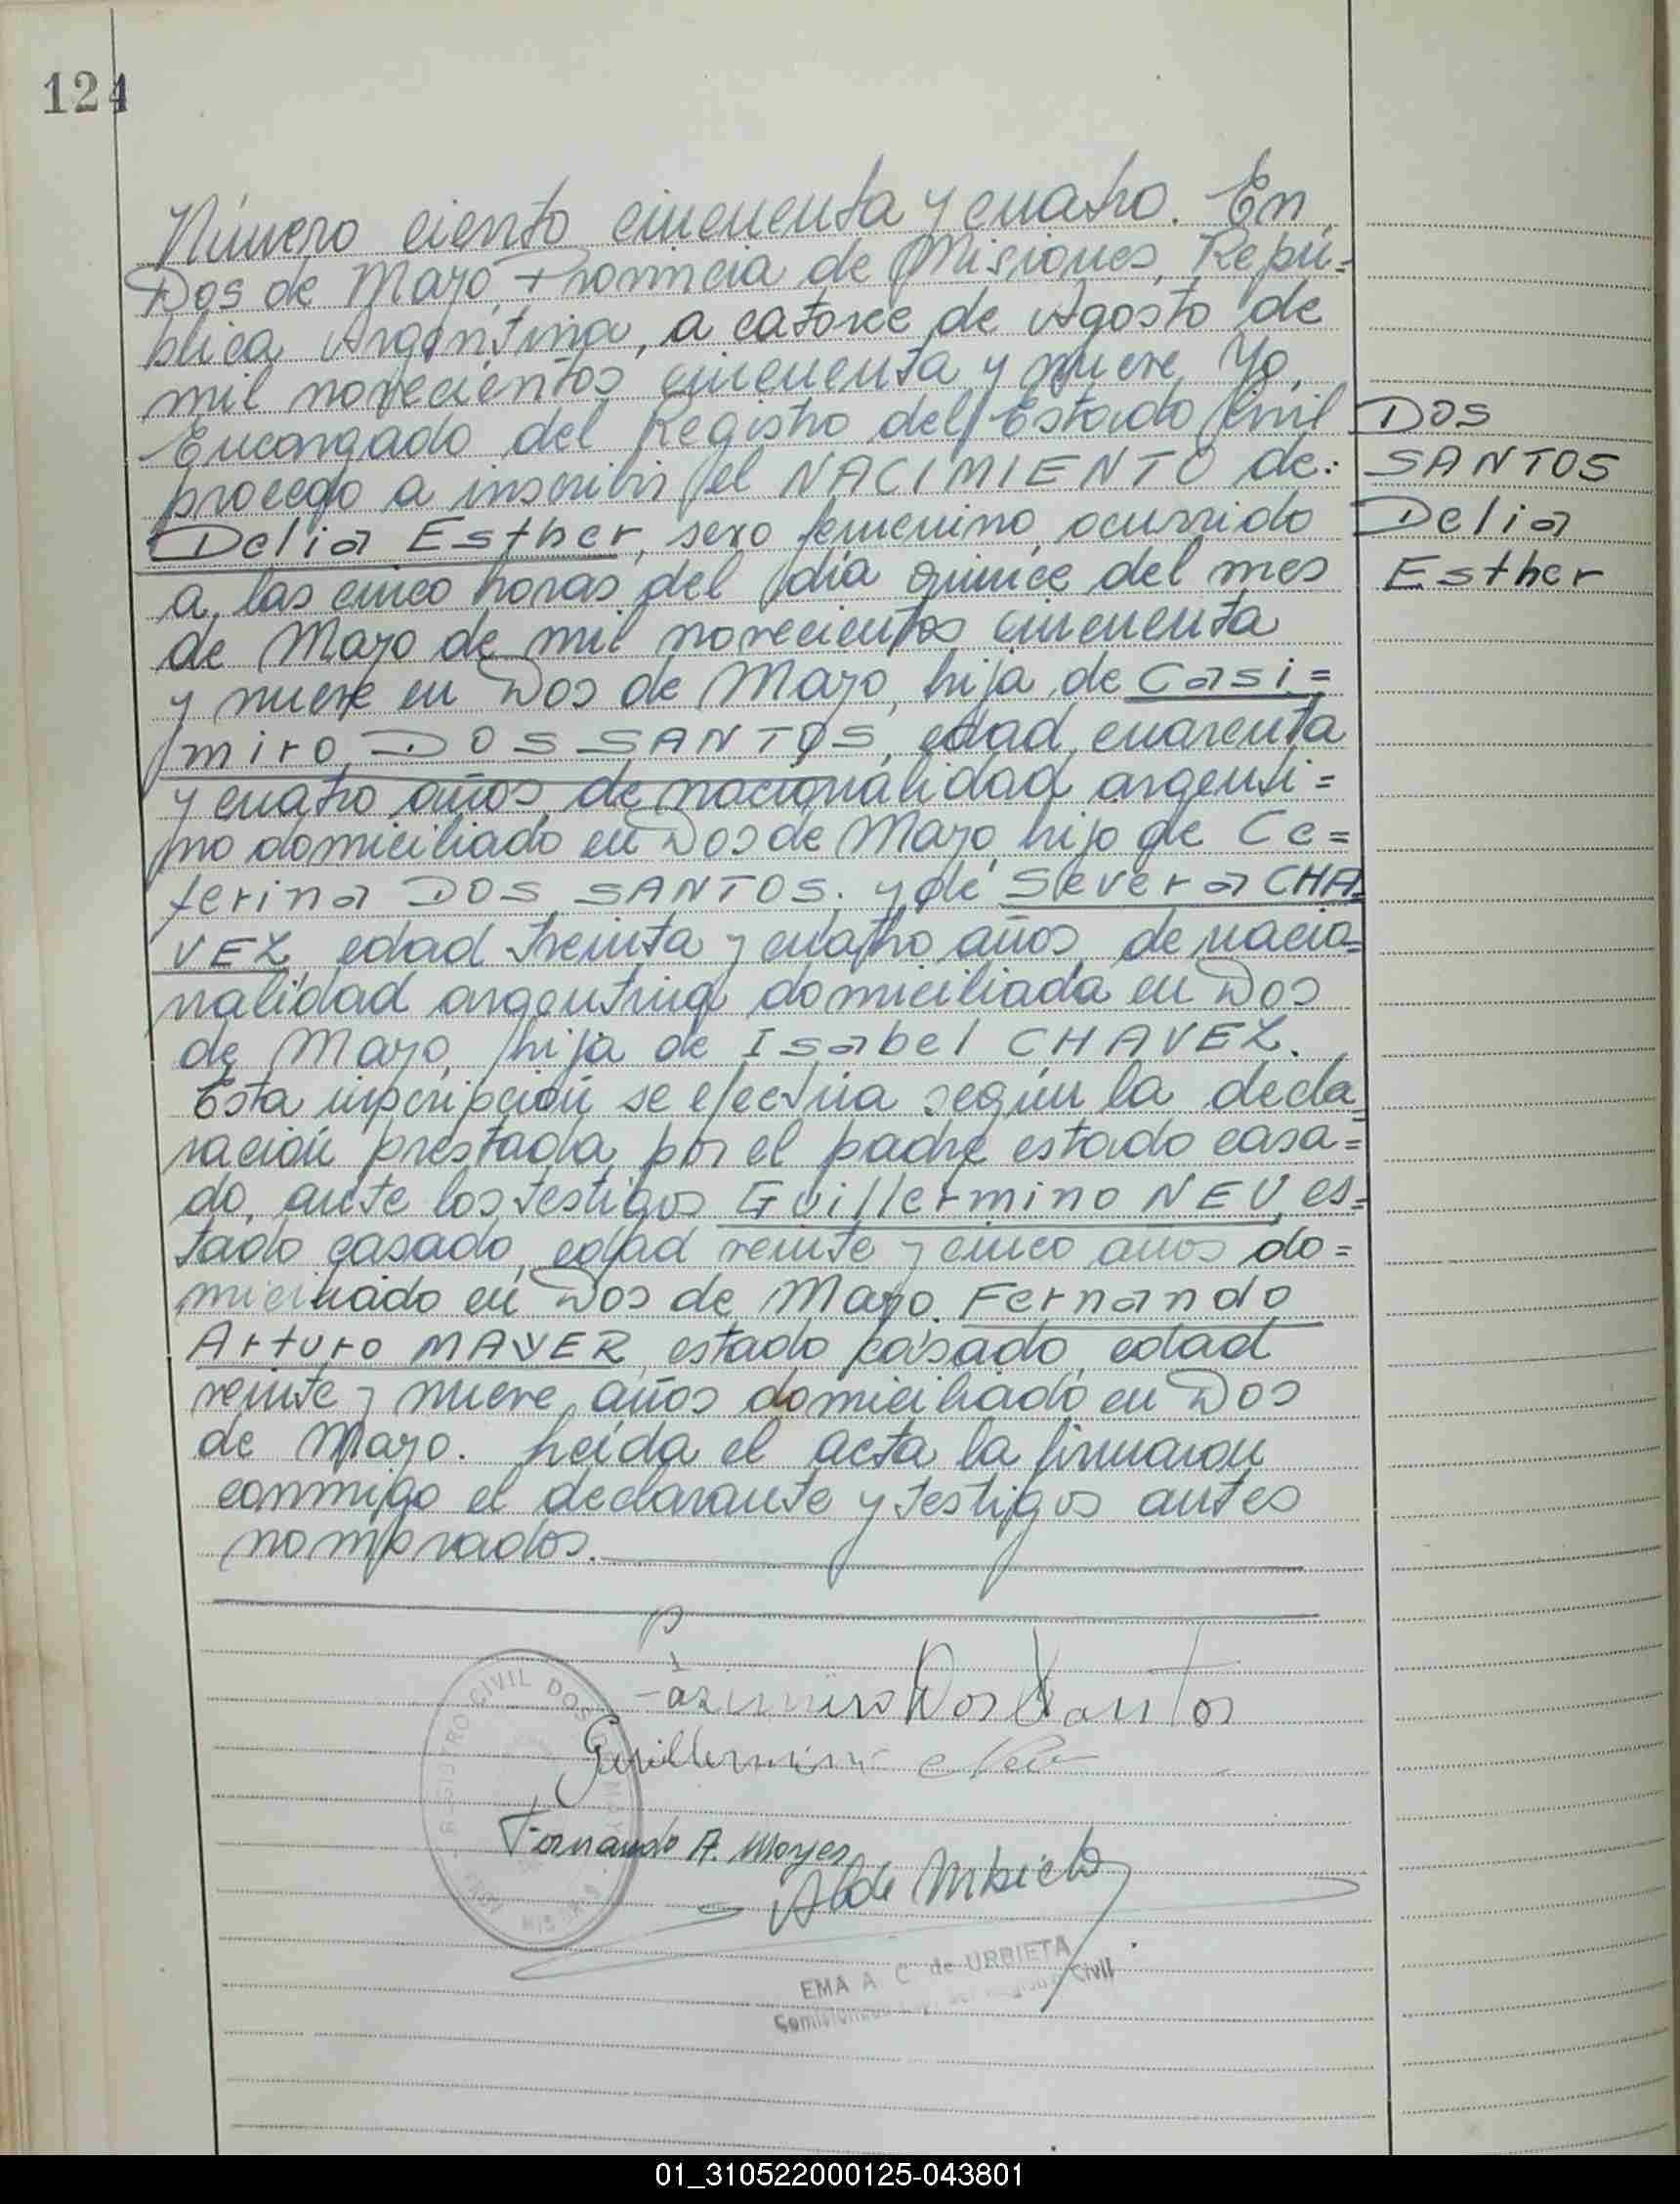 124
Número ciento cincuenta y cuatro. En
Dos de Mayo, Provincia de Misiones, Repú=
blica Argentina, a catorce de Agosto de
mil novecientos cincuenta y nueve. Yo,
Encargado del Registro del Estado Civil
procedo a inscribir el NACIMIENTO de:
Delia Esther, sexo femenino, ocurrido
a las cinco horas del día quince del mes
de Mayo de mil novecientos cincuenta
y nueve en Dos de Mayo, hija de Casi=
miro DOS SANTOS, edad cuarenta
y cuatro años, de nacionalidad argenti=
no domiciliado en Dos de Mayo, hijo de Ce=
ferina DOS SANTOS. y de Severa CHA=
VEZ, edad treinta y cuatro años, de nacio=
nalidad argentina domiciliada en Dos
de Mayo, hija de Isabel CHAVEZ.
Esta inscripción se efectúa según la decla=
ración prestada por el padre estado casa=
do, ante los testigos Guillermino NEU, es=
tado casado, edad veinte y cinco años do=
miciliado en Dos de Mayo. Fernando
Arturo MAYER, estado casado, edad
veinte y nueve años domiciliado en Dos
de Mayo. Leída el acta la firmaron
conmigo el declarante y testigos antes
nombrados.
DOS
SANTOS
Delia
Esther
Casimiro Dos Santos
Guillermino Neu
Fernando A. Mayer
REGISTRO CIVIL DOS MAYO
EMA A. C. de URBIETA
Civil
01_310522000125-043801